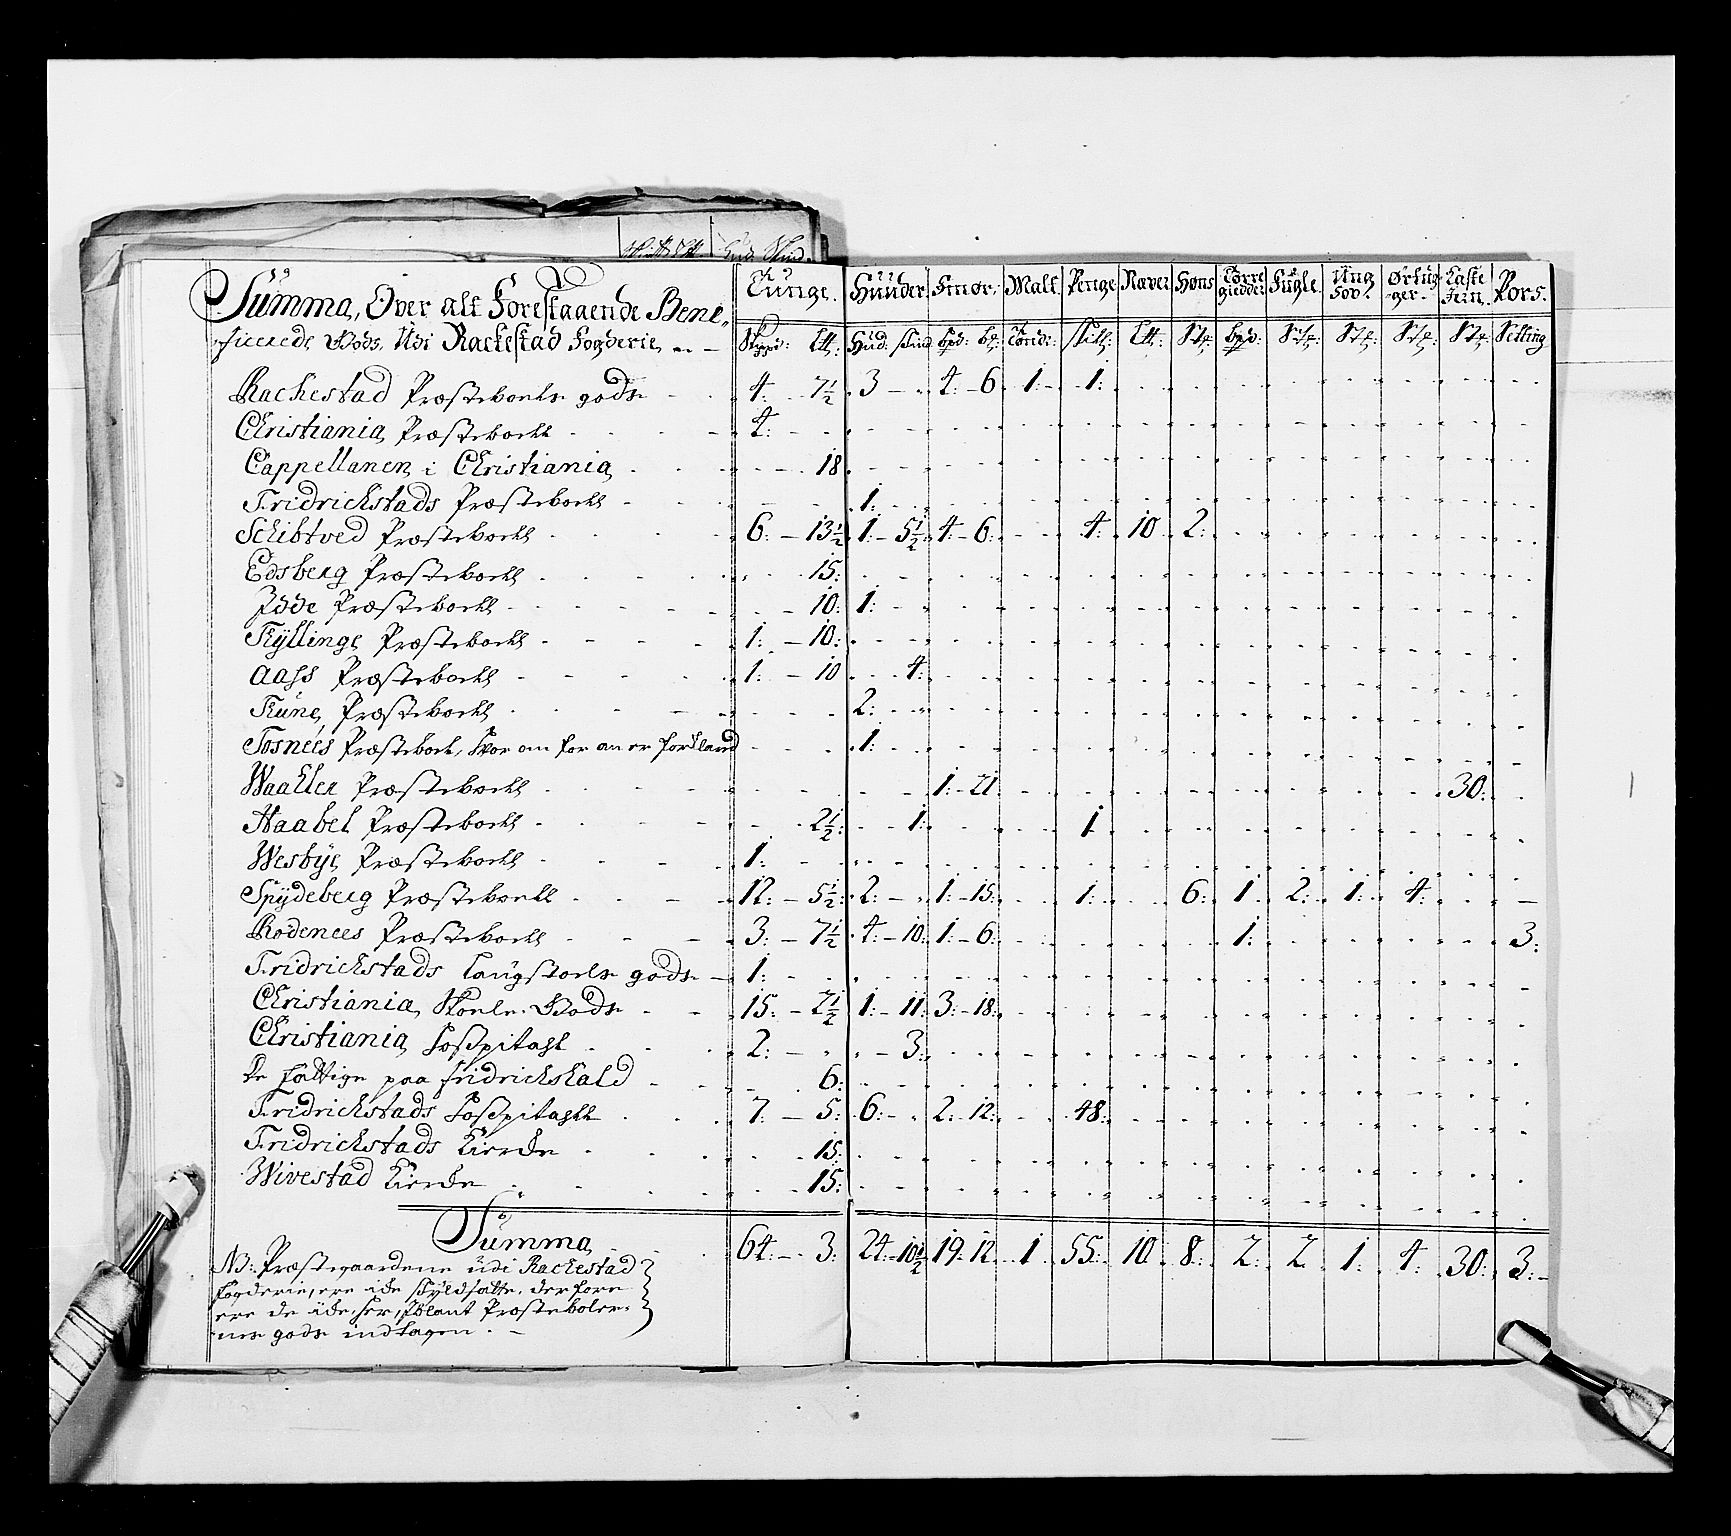 Summa, Over alt Forestaaende Bene-
ficerede Gods, Udi Rackestad Fogderie
Tunge. | Huuder | Smør. | Malt | Penge | Næver | Høns | Tørre giedder | Fugle. | Ung Sov. | Ørting-ger. | Laste Tün. | Pors.
Skppd: Ltt: | Hud: Skind | bpd: | Tønde: | skill: | Ltt: | Stq: | bpd: | Stq: | Stq: | Stq: | Stq: | Setting
Rachestad Præstebohls gods 4: 7½ | 3 | 4: 6 | 1: | 1:
Christiania Præstebohl 4:
Cappellanen i Christiania 18
Fridrichstads Præstebohl | 1:
Schibtved Præstebohl 6: 13½ | 1: 5½ | 4: 6: | | 4: | 10 | 2:
Edsberg Præstebohl 15:
Idde Præstebohl 10: | 1:
Kyllinge Præstebohl 1: 10:
Aass Præstebohl 1: 10 | 4:
Præstebohl | 2:
Tosnees Præstebohl, | 1:
Waaller Præstebohl | | 1: 21 | 30:
Haabel Præstebohl 2½: | 1: | | | 1
Wesbye Præstebohl 1:
Spydeberg Præstebohl 12: 5½: | 2: | 1: 15: | | 1: | | 6: | 1: | 2: | 1: | 4:
Rodenees Præstebohl 3: 7½ | 4: 10: | 1: 6: | 1: | 3:
Fridrichstads Laugstoels gods 1:
Christiania Skoele Gods 15: 2½ | 1: 11: | 3: 18:
Christiania Hospitahl 2: | 3:
De fattige paa Fridrichshald 6:
Fridrichstads Hospitahl 7: 5: | 6: | 2: 12: | | 48:
Fridrichstads Kierche 15:
Wivestad Kierche 15:
Summa 64: 3: | 24: 10½ | 19: 12 | 1 | 55: | 10 | 8: | 2: | 2 | 1: | 4: | 30: | 3:
NB: Præstegaardene udi Rachestad
Fogderie, ere icke skyldsatte, derfore
ere de icke her iblant Præstebohler-
nes gods indtagen.